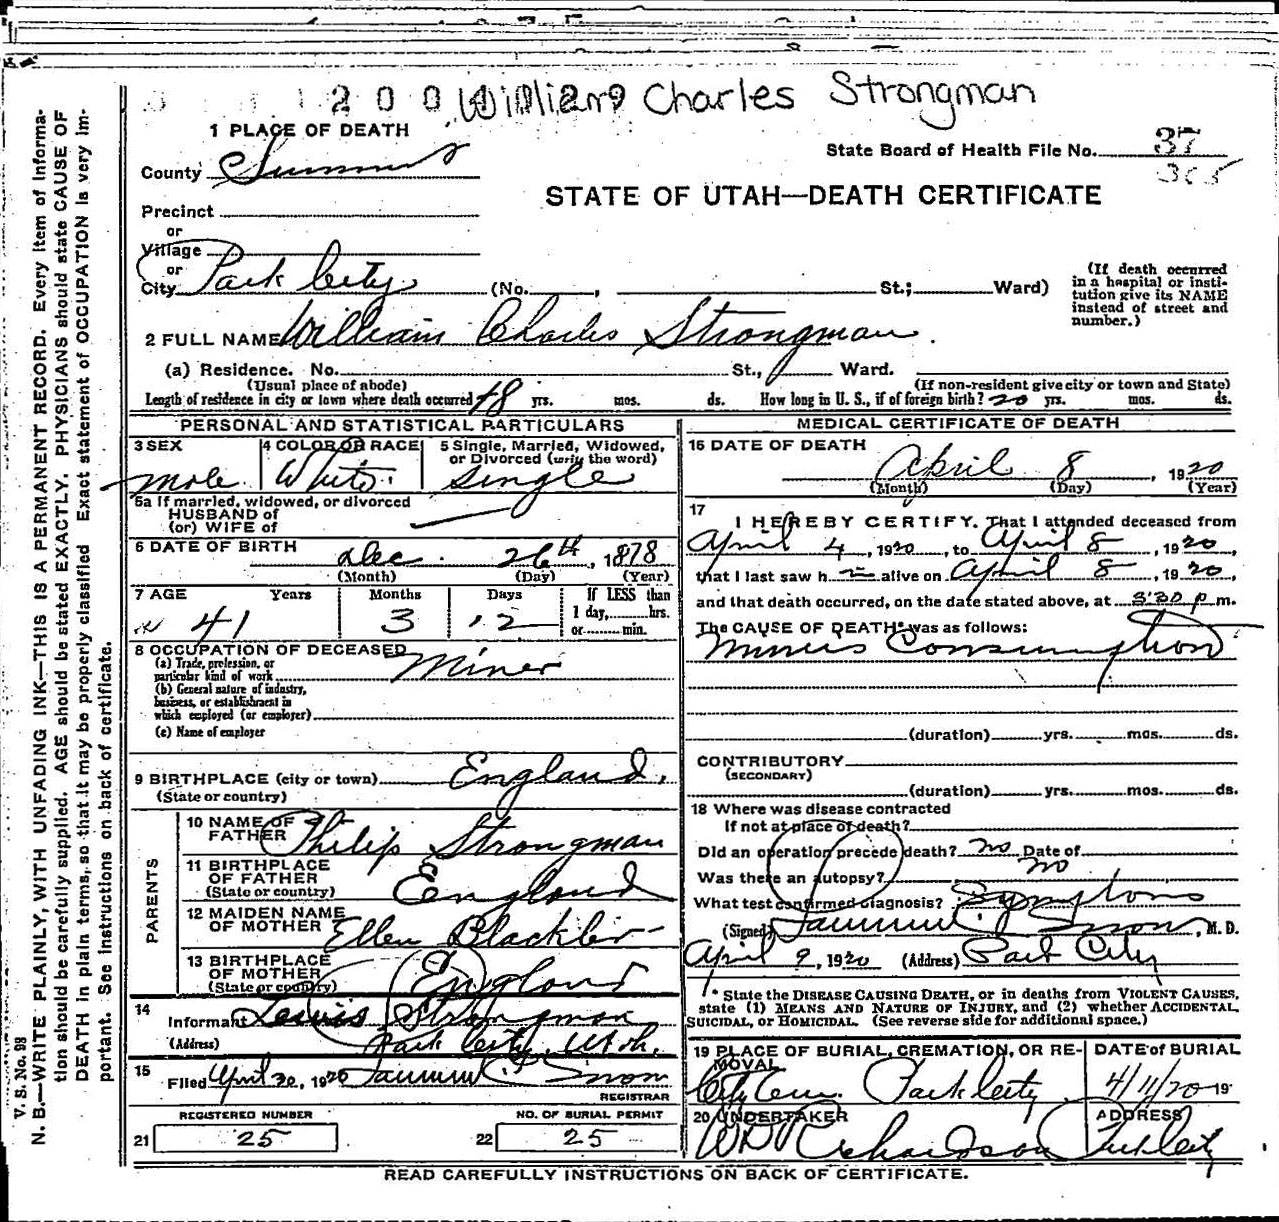 2 0 0
William Charles Strongman
1 PLACE OF DEATH
State Board of Health File No. 37
365
County Summit
STATE OF UTAH—DEATH CERTIFICATE
Precinct
or
Village
or
City Park City (No. , St.; Ward)
(If death occurred
in a hospital or insti-
tution give its NAME
instead of street and
number.)
2 FULL NAME William Charles Strongman.
(a) Residence. No. St., Ward.
(Usual place of abode) (If non-resident give city or town and State)
Length of residence in city or town where death occurred 48 yrs. mos. ds. How long in U. S., if of foreign birth? 20 yrs. mos. ds.
PERSONAL AND STATISTICAL PARTICULARS
3 SEX
male
4 COLOR OR RACE
White.
5 Single, Married, Widowed,
or Divorced (write the word)
Single
5a If married, widowed, or divorced
HUSBAND of
(or) WIFE of
6 DATE OF BIRTH Dec. 26th, 1878
(Month) (Day) (Year)
7 AGE Years Months Days
41 3 12
If LESS than
1 day, hrs.
or min.
8 OCCUPATION OF DECEASED
(a) Trade, profession, or
particular kind of work Miner
(b) General nature of industry,
business, or establishment in
which employed (or employer)
(c) Name of employer
9 BIRTHPLACE (city or town) England.
(State or country)
PARENTS
10 NAME OF
FATHER Philip Strongman
11 BIRTHPLACE
OF FATHER
(State or country) England
12 MAIDEN NAME
OF MOTHER Ellen Blackler
13 BIRTHPLACE
OF MOTHER
(State or country) England
14
Informant Lewis Strongman
(Address) Park City, Utah.
15
Filed April 20, 1920 Snow
REGISTRAR
REGISTERED NUMBER
21 25
NO. OF BURIAL PERMIT
22 25
MEDICAL CERTIFICATE OF DEATH
16 DATE OF DEATH
April 8, 1920
(Month) (Day) (Year)
17
I HEREBY CERTIFY. That I attended deceased from
April 4, 1920, to April 8, 1920,
that I last saw h alive on April 8, 1920,
and that death occurred, on the date stated above, at 5:30 p m.
The CAUSE OF DEATH* was as follows:
Miners Consumption
(duration) yrs. mos. ds.
CONTRIBUTORY
(SECONDARY)
(duration) yrs. mos. ds.
18 Where was disease contracted
If not at place of death?
Did an operation precede death? no Date of
Was there an autopsy? no
What test confirmed diagnosis? Symptoms
(Signed) Snow, M. D.
April 9, 1920 (Address) Park City
* State the DISEASE CAUSING DEATH, or in deaths from VIOLENT CAUSES,
state (1) MEANS AND NATURE OF INJURY, and (2) whether ACCIDENTAL,
SUICIDAL, or HOMICIDAL. (See reverse side for additional space.)
19 PLACE OF BURIAL, CREMATION, OR RE-
MOVAL
City Cem. Park City
DATE of BURIAL
4/11/20 19
20 UNDERTAKER
W D Richardson
ADDRESS
Park City
READ CAREFULLY INSTRUCTIONS ON BACK OF CERTIFICATE.
V. S. No. 98
N. B.—WRITE PLAINLY, WITH UNFADING INK—THIS IS A PERMANENT RECORD. Every item of informa-
tion should be carefully supplied. AGE should be stated EXACTLY. PHYSICIANS should state CAUSE OF
DEATH in plain terms, so that it may be properly classified Exact statement of OCCUPATION is very im-
portant. See instructions on back of certificate.